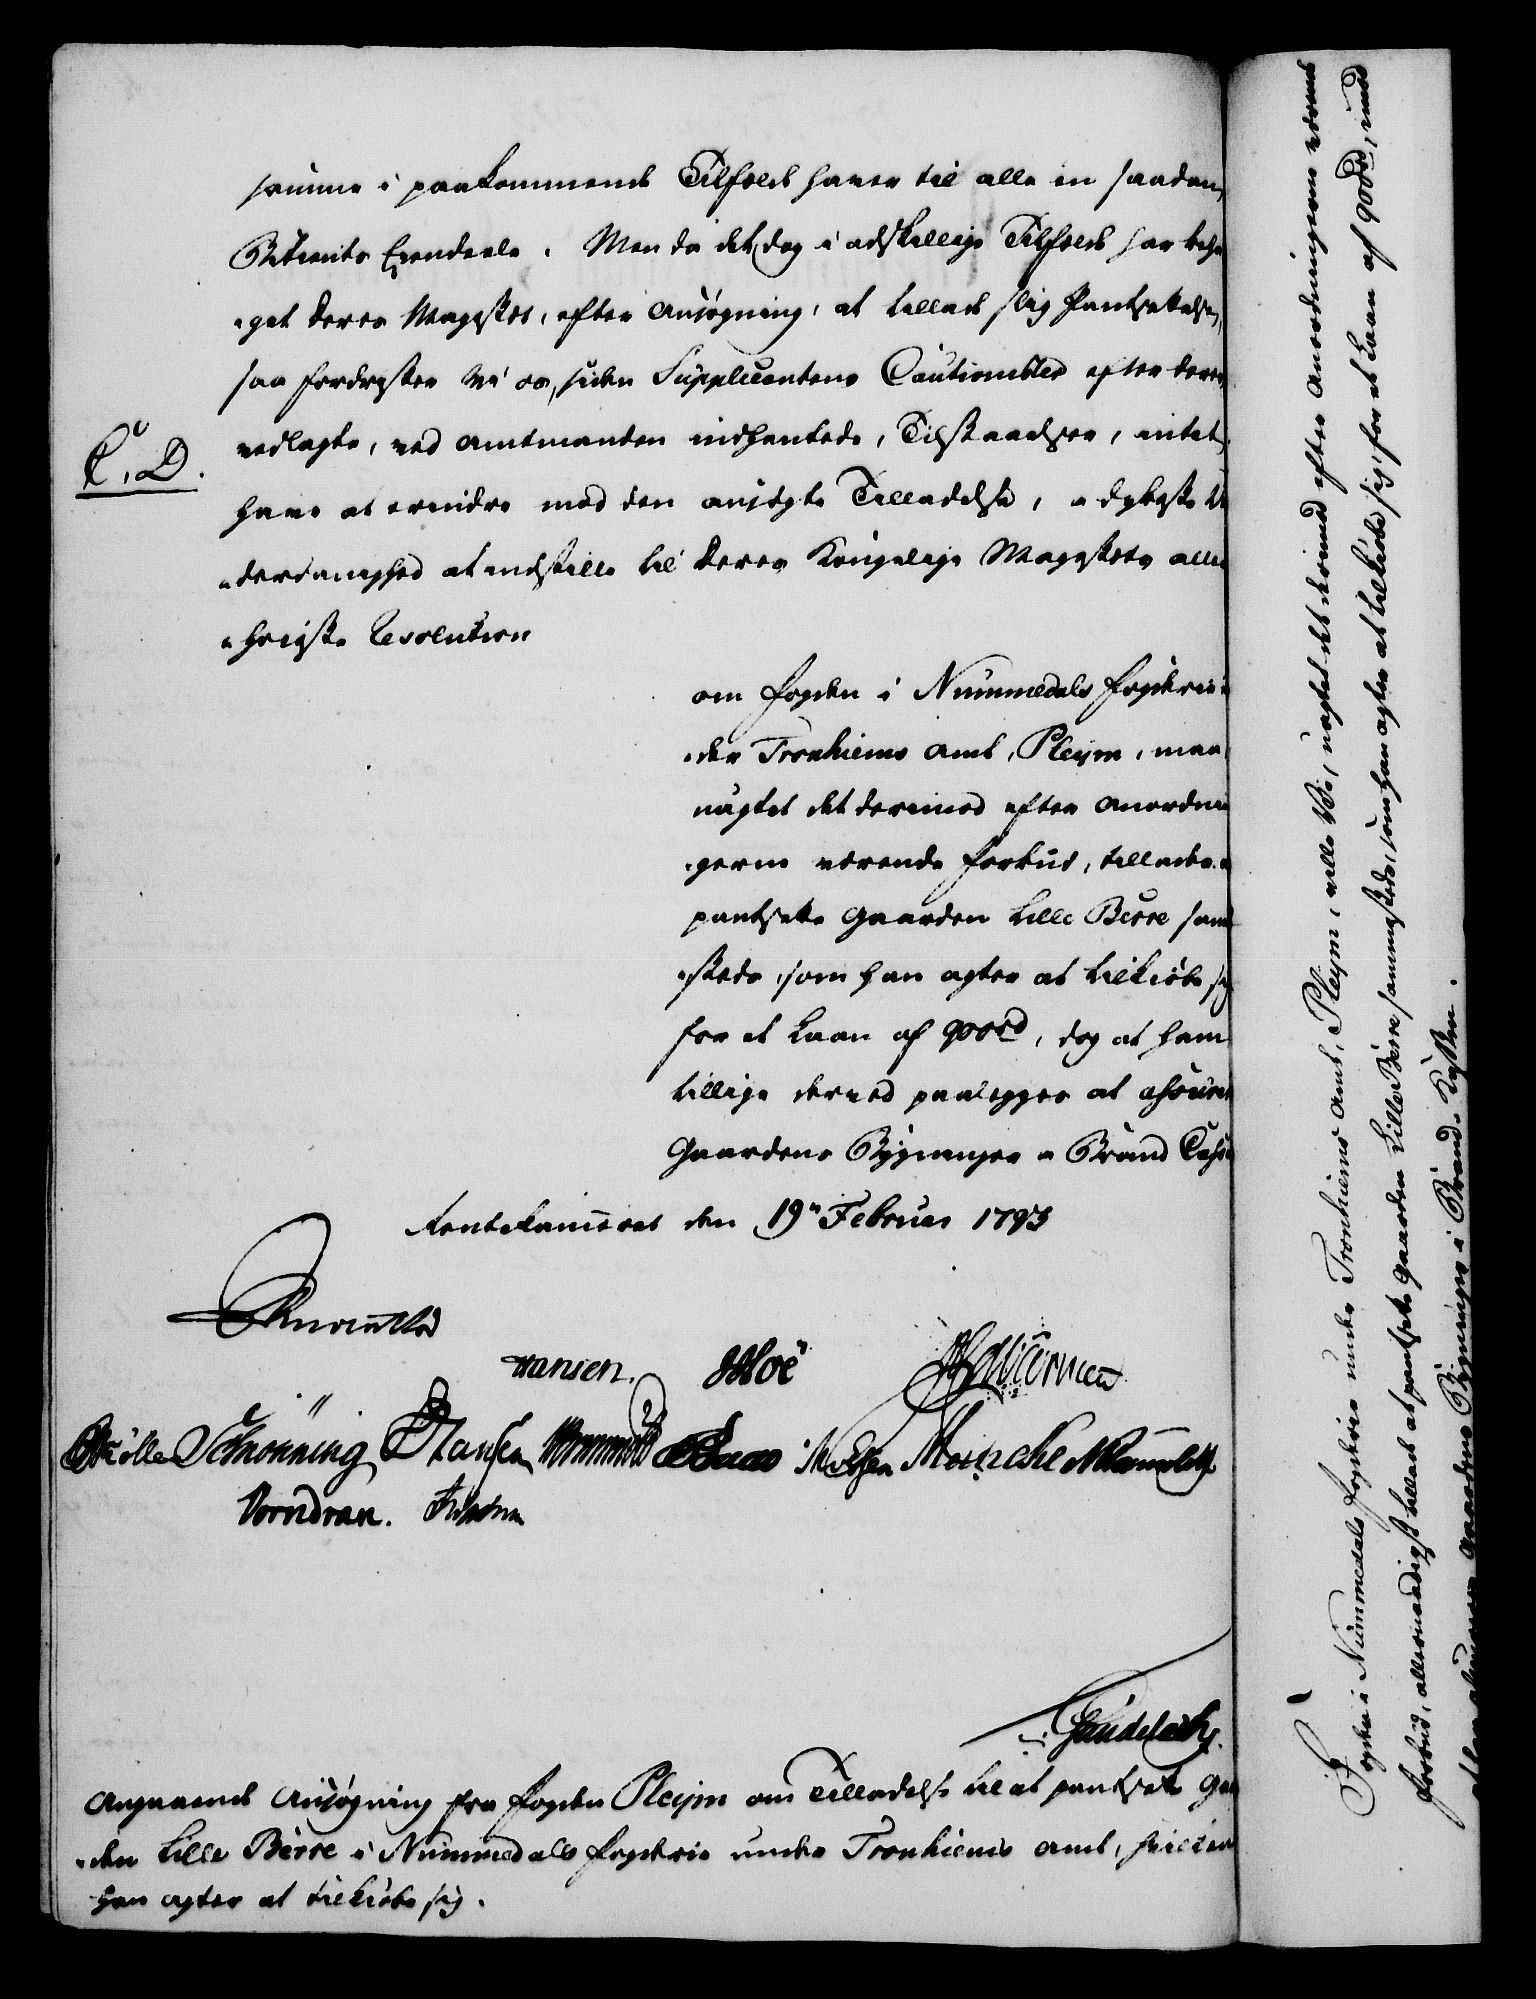 samme i paakommende Tilfælde haver til alle en saadan
Betients Eyendeele. Men da det dog i adskillige Tilfælde har beha
„get Deres Majestet, efter Ansøgning, at tillade slig Pantsættelse,
saa fordrister Vi os, siden Supplicantens Cautionister efter deres
C. D.
vedlagte, ved Amtmanden indhentede, Tilstaaelser, intet
have at erindre mod den ansøgte Tilladelse, i dybeste Un
„derdanighed at indstille til Deres Kongelige Majestets aller
„høieste Resolution
om Fogden i Nummedals Fogderie un
„der Tronhiems Amt, Pleym, maae
uagtet det derimod efter Anordnin
„gerne værende Forbud, tillades at
pantsætte Gaarden Lille Berre samme
„steds, som han agter at tilkiøbe sig
for et Laan af 900rd, dog at ham
tillige derved paalegges at assurere
Gaardens Bygninger i Brand Cassen
Rentekammeret den 19n Februar 1793
Hansen. Moe
Müller Schönning Hansen Munche
Vorndran.
Gaudelach.
Angaaende Ansøgning fra Fogden Pleym om Tilladelse til at pantsætte Gaar
„den Lille Berre i Nummedals Fogderie under Tronhiems Amt, hvilken
han agter at tilkiøbe sig.
Fogden i Nummedals Fogderie under Tronhiems Amt, Pleym, ville Vi, uagtet det derimod efter Anordningerne værende
Forbud, allernaadigst tillade at pantsætte Gaarden Lille Berre sammesteds, som han agter at tilkiøbe sig, for et Laan af 900rd, imod
Gaardens Bygninger i Brand-Kassen.